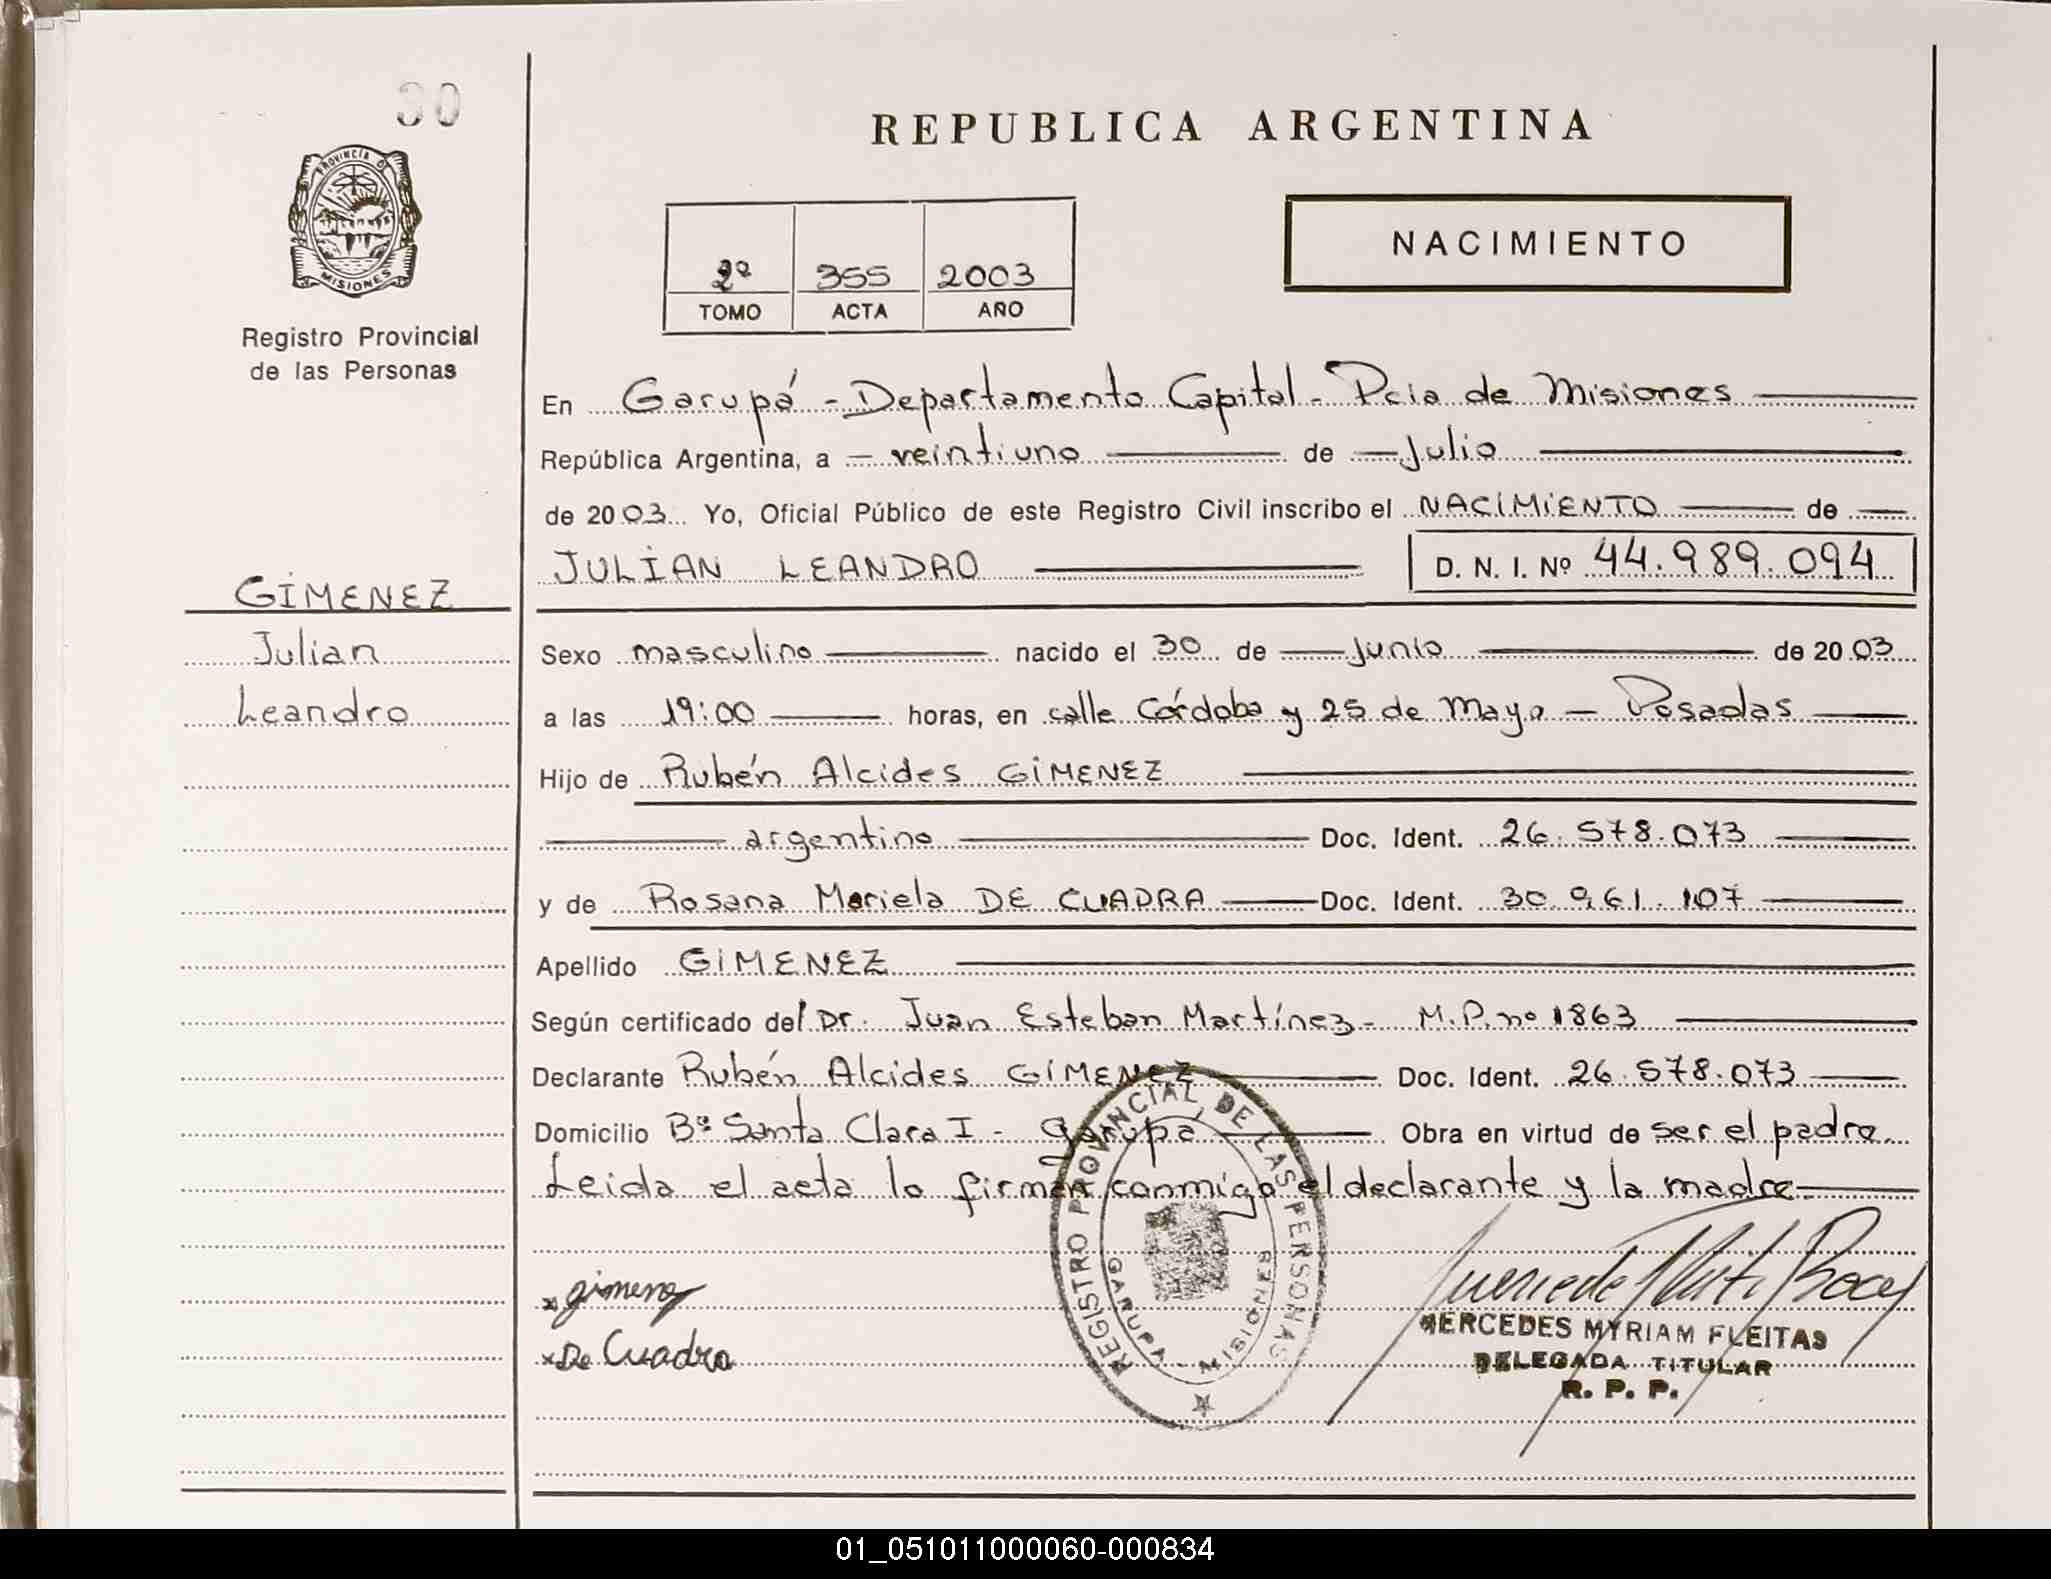 30
PROVINCIA DE
MISIONES
Registro Provincial
de las Personas
GIMENEZ
Julian
Leandro
REPUBLICA ARGENTINA
NACIMIENTO
2º 355 2003
TOMO ACTA AÑO
En Garupá - Departamento Capital - Pcia de Misiones
República Argentina, a veintiuno de Julio
de 2003 Yo, Oficial Público de este Registro Civil inscribo el NACIMIENTO de
JULIAN LEANDRO D. N. I. Nº 44.989.094
Sexo masculino nacido el 30 de junio de 2003
a las 19:00 horas, en calle Córdoba y 25 de Mayo - Posadas
Hijo de Rubén Alcides GIMENEZ
argentino Doc. Ident. 26.578.073
y de Rosana Mariela DE CUADRA Doc. Ident. 30.961.107
Apellido GIMENEZ
Según certificado del Dr. Juan Esteban Martínez - M.P. nº 1863
Declarante Rubén Alcides GIMENEZ Doc. Ident. 26.578.073
Domicilio Bº Santa Clara I - Garupá Obra en virtud de ser el padre.
Leida el acta lo firman conmigo el declarante y la madre.
x gimenez
x De Cuadra
REGISTRO PROVINCIAL DE LAS PERSONAS
GARUPA - MISIONES
MERCEDES MYRIAM FLEITAS
DELEGADA TITULAR
R. P. P.
01_051011000060-000834